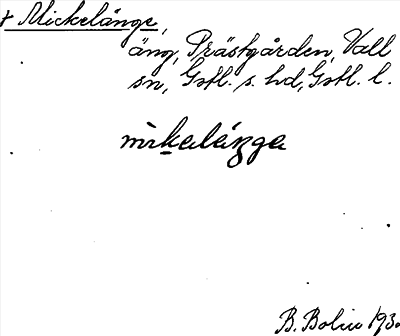 † Mickelänge,
äng, Prästgården, Vall
sn, Gotl. s. hd, Gotl. l.
mìkalä́nga
B. Bolin 193.